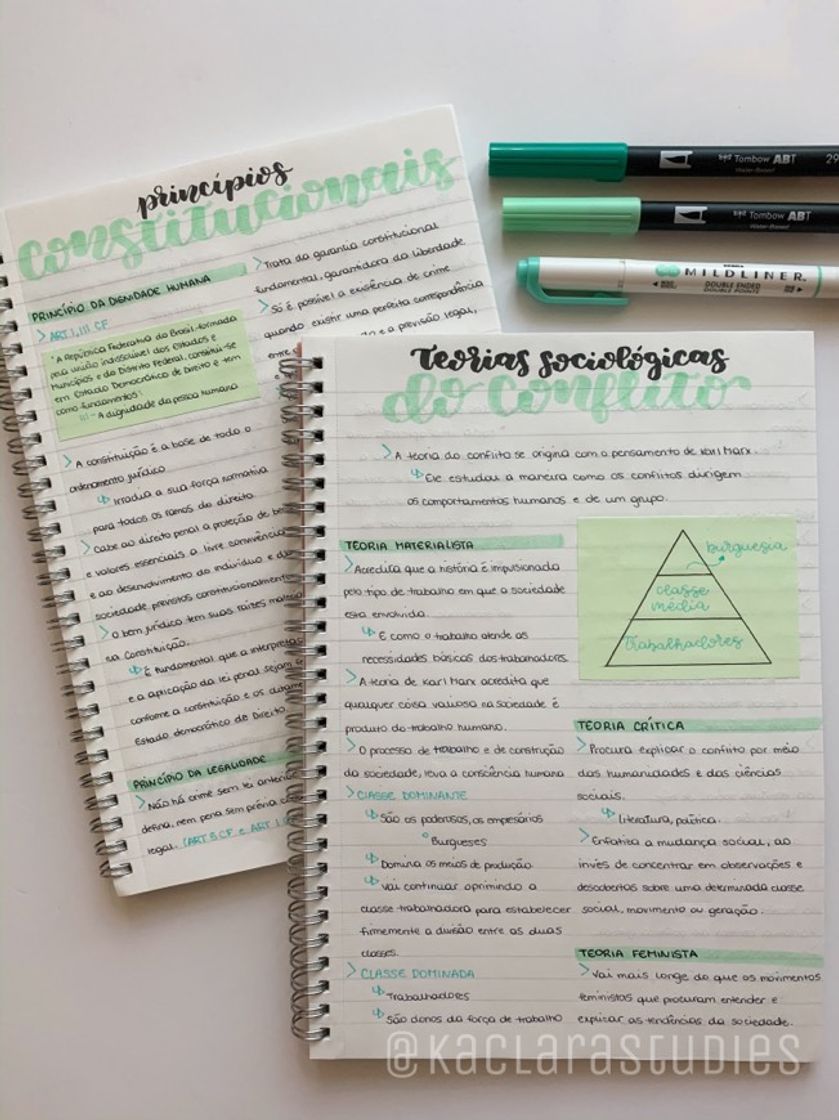 princípios
constitucionais
PRINCÍPIO DA DIGNIDADE HUMANA
> ART 1, III CF
"A República Federativa do Brasil, formada
pela união indissolúvel dos Estados e
Municípios e do Distrito Federal, constitui-se
em Estado Democrático de Direito e tem
como fundamentos:
III - A dignidade da pessoa humana
> A constituição é a base de todo o
ordenamento jurídico
↳ Irradia a sua força normativa
para todos os ramos do direito.
> Cabe ao direito penal a proteção de
e valores essenciais a livre convivência
e ao desenvolvimento do indivíduo e
sociedade, previstos constitucionalmente
> O bem jurídico tem suas raízes
na Constituição.
↳ É fundamental que a
e a aplicação da lei penal sejam
conforme a constituição e os
Estado democrático de Direito.
PRINCÍPIO DA LEGALIDADE
> Não há crime sem lei
defina, nem pena sem prévia
legal. (ART 5 CF e ART 1
> Trata da garantia constitucional
fundamental, garantidora da liberdade
> Só é possível a existência de crime
quando existir uma perfeita correspondência
e a previsão legal,
Teorias sociológicas
do conflito
> A teoria do conflito se origina com o pensamento de Karl Marx.
↳ Ele estudou a maneira como os conflitos dirigem
os comportamentos humanos e de um grupo.
TEORIA MATERIALISTA
> Acredita que a história é impulsionada
pelo tipo de trabalho em que a sociedade
esta envolvida.
↳ E como o trabalho atende as
necessidades básicas dos trabalhadores.
> A teoria de Karl Marx acredita que
qualquer coisa valiosa na sociedade é
produto do trabalho humano.
> O processo de trabalho e de construção
da sociedade, leva a consciência humana
> CLASSE DOMINANTE
↳ São os poderosos, os empresários
° Burgueses
↳ Domina os meios de produção.
↳ Vai continuar oprimindo a
classe trabalhadora para estabelecer
firmemente a divisão entre as duas
classes.
> CLASSE DOMINADA
↳ Trabalhadores
↳ São donos da força de trabalho
burguesia
classe
média
Trabalhadores
TEORIA CRÍTICA
> Procura explicar o conflito por meio
das humanidades e das ciências
sociais.
↳ Literatura, política.
> Enfatiza a mudança social, ao
invés de concentrar em observações e
desobertas sobre uma determinada classe
social, movimento ou geração.
TEORIA FEMINISTA
> Vai mais longe do que os movimentos
feministas que procuram entender e
explicar as tendências da sociedade.
Tombow ABT 29
Water-Based
Tombow ABT
Water-Based
ZEBRA
MILDLINER
DOUBLE ENDED
DOUBLE POINTE
@KACLARASTUDIES